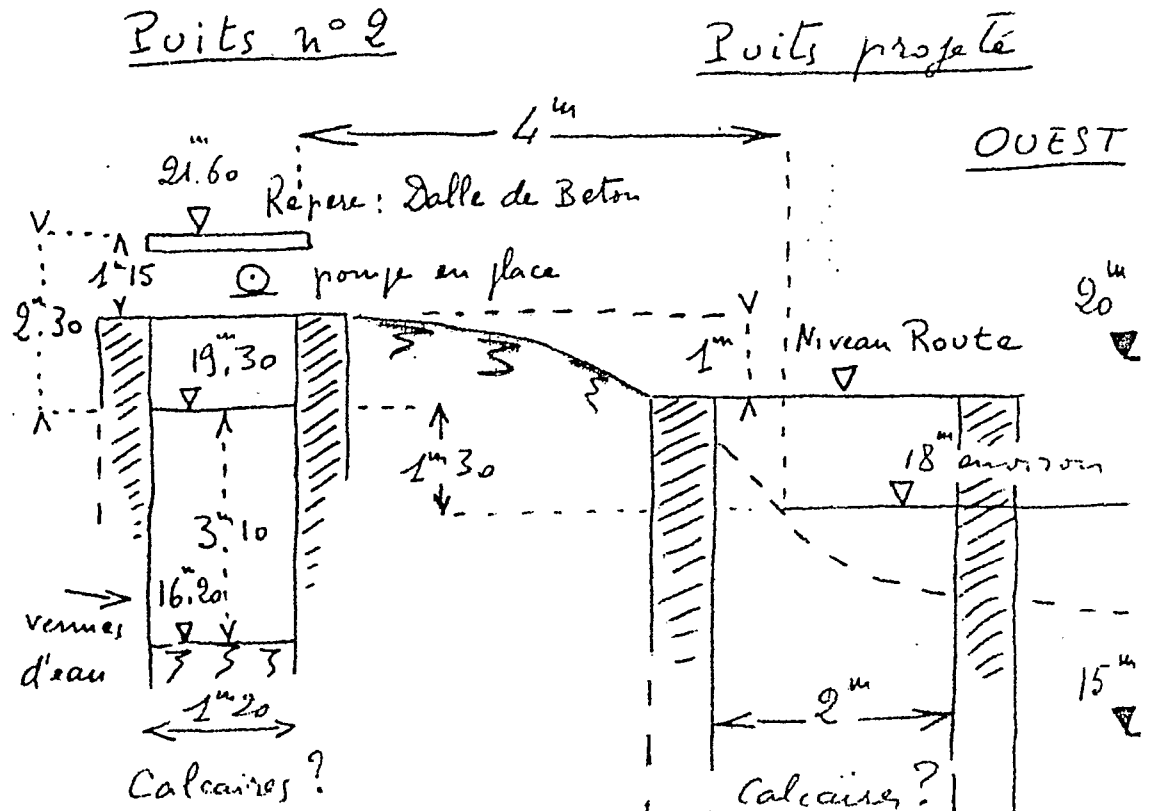 Puits n° 2
Puits projeté
4m
OUEST
21m.60
Repere : Dalle de Beton
1m15
pompe en place
20m
2m.30
19m.30
1m
Niveau Route
1m30
18m environ
3m.10
16m.20
venues
d'eau
15m
1m20
2m
Calcaires ?
Calcaires ?